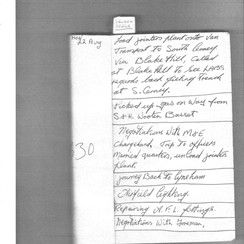 Mon 22 Aug
Load jointers plant onto Van
Transport to South Cerney
Van Blake Hill, Called
at Blake Hill to See
regards back filling trench
at S. Cerney.
Picked up on way from
S & H Wooten Basset
30
Negotiation With M&E
Chargehand, Trip to officers
Married quarters, unload jointers
plant.
Journey Back to Lyneham
Airfield Lighting.
Repairing A.F.L. fittings
Negotiations With foreman,